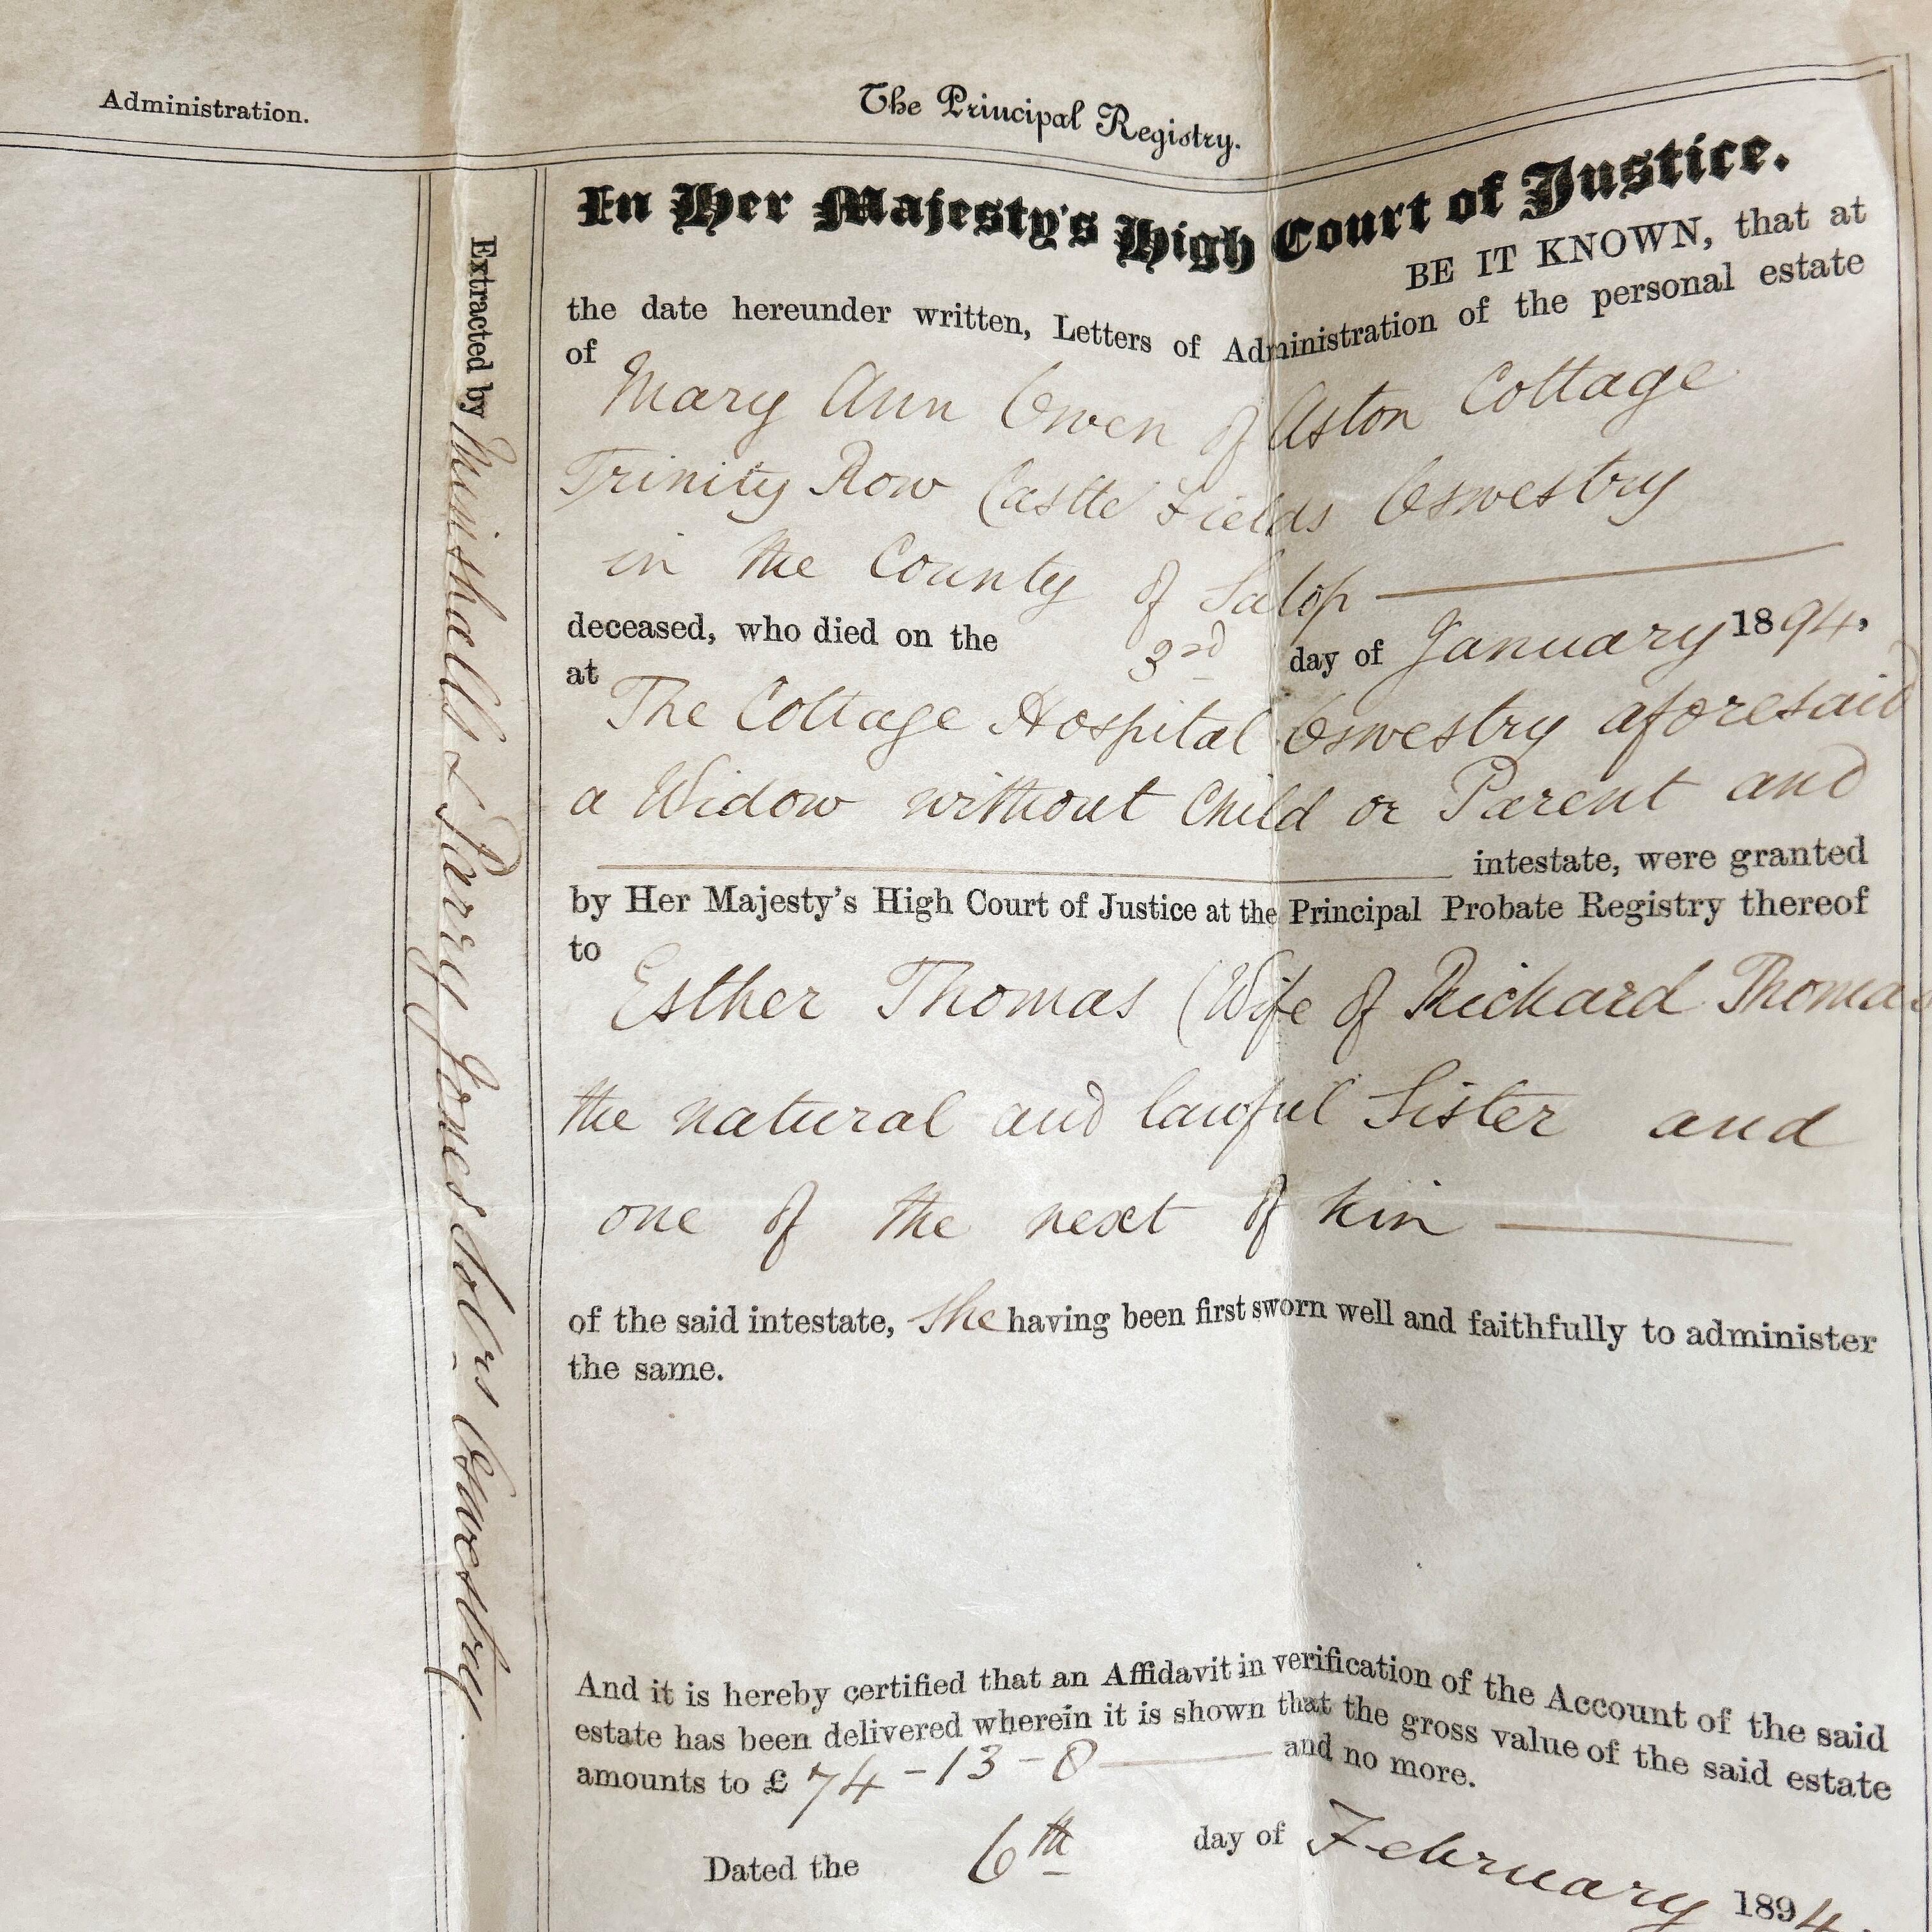 Administration.
The Principal Registry.
In Her Majesty's High Court of Justice.
BE IT KNOWN, that at
the date hereunder written, Letters of Administration of the personal estate
of Mary Ann Owen of Aston Cottage
Trinity Row Castle Fields Oswestry
in the County of Salop
deceased, who died on the 3rd day of January 1894,
at The Cottage Hospital Oswestry aforesaid
a Widow without Child or Parent and
intestate, were granted
by Her Majesty's High Court of Justice at the Principal Probate Registry thereof
to Esther Thomas (Wife of Richard Thomas
the natural and lawful Sister and
one of the next of kin
of the said intestate, she having been first sworn well and faithfully to administer
the same.
And it is hereby certified that an Affidavit in verification of the Account of the said
estate has been delivered wherein it is shown that the gross value of the said estate
amounts to £ 74-13-8 and no more.
Dated the 6th day of February 1894.
Extracted by Minshalls & Parry Jones Solrs Oswestry.